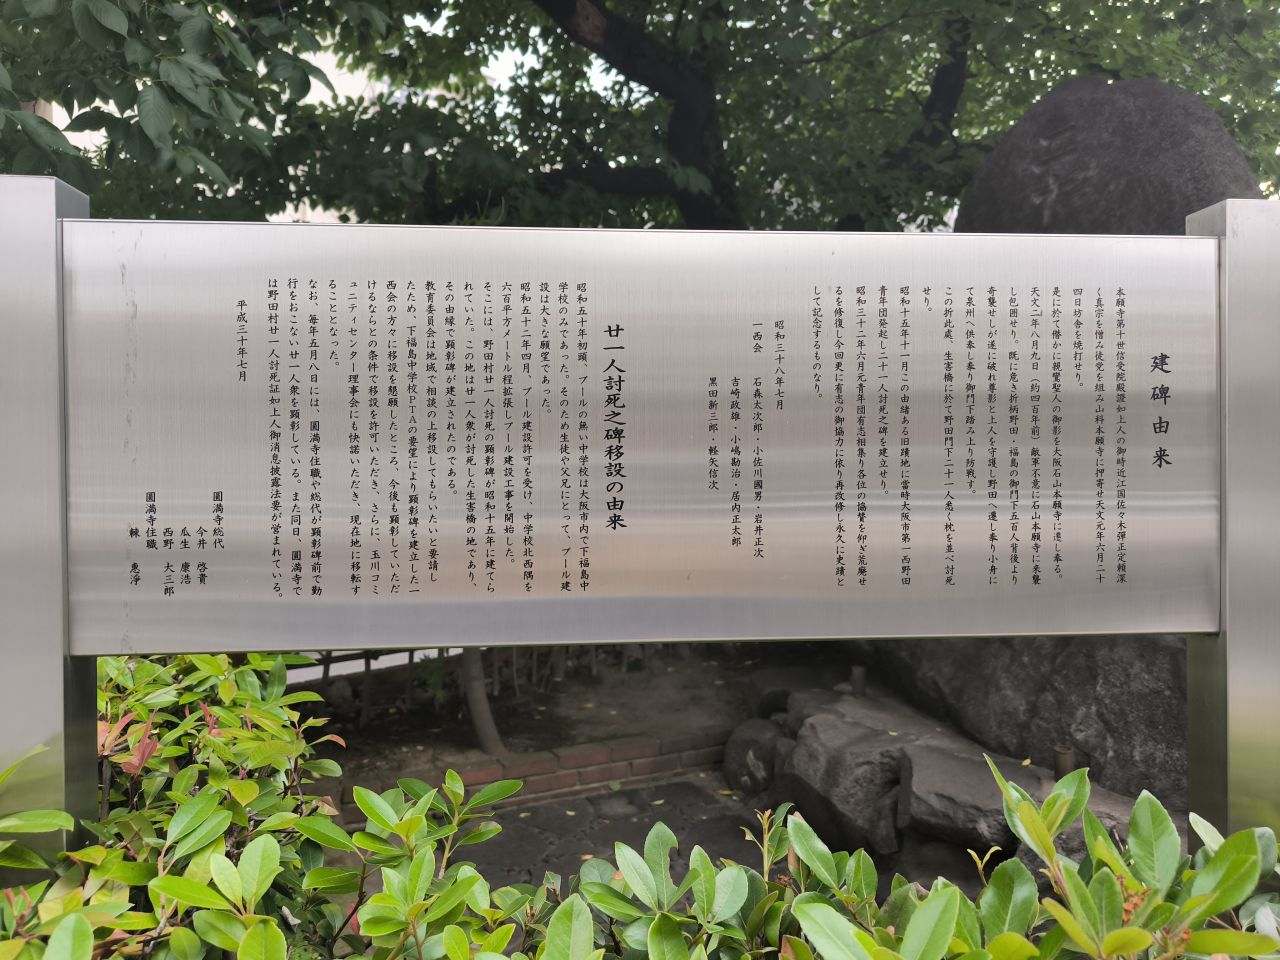 建碑由来
本願寺第十世信受院殿證如上人の御時近江国佐々木弾正定頼深
く真宗を憎み徒党を組み山科本願寺に押寄せ天文元年六月二十
四日坊舎を焼打せり。
是に於て僅かに親鸞聖人の御影を大阪石山本願寺に遷し奉る。
天文二年八月九日（約四百年前）敵軍不意に石山本願寺に来襲
し包囲せり。既に危き折柄野田・福島の御門下五百人背後より
奇襲せしが遂に破れ尊影と上人を守護し野田へ遷し奉り小舟に
て泉州へ供奉し奉り御門下踏み上り防戦す。
この折此處、生害橋に於て野田門下二十一人悉く枕を並べ討死
せり。
昭和十五年十一月この由緒ある旧蹟地に當時大阪市第一西野田
青年団発起し二十一人討死之碑を建立せり。
昭和三十二年六月元青年団有志相集り各位の協賛を仰ぎ荒廃せ
るを修復し今回更に有志の御協力に依り再改修し永久に史蹟と
して記念するものなり。
昭和三十八年七月
一西会　石森太次郎・小佐川國男・岩井正次
吉崎政雄・小嶋勘治・居内正太郎
黒田新三郎・軽矢信次
廿一人討死之碑移設の由来
昭和五十年初頭、プールの無い中学校は大阪市内で下福島中
学校のみであった。そのため生徒や父兄にとって、プール建
設は大きな願望であった。
昭和五十二年四月、プール建設許可を受け、中学校北西隅を
六百平方メートル程拡張しプール建設工事を開始した。
そこには、野田村廿一人討死の顕彰碑が昭和十五年に建てら
れていた。この地は廿一人衆が討死した生害橋の地であり、
その由縁で顕彰碑が建立されたのである。
教育委員会は地域で相談の上移設してもらいたいと要請し
たため、下福島中学校ＰＴＡの要望により顕彰碑を建立した一
西会の方々に移設を懇願したところ、今後も顕彰していただ
けるならとの条件で移設を許可いただき、さらに、玉川コミ
ュニティセンター理事会にも快諾いただき、現在地に移転す
ることとなった。
なお、毎年五月八日には、圓満寺住職や総代が顕彰碑前で勤
行をおこない廿一人衆を顕彰している。また同日、圓満寺で
は野田村廿一人討死証如上人御消息披露法要が営まれている。
平成三十年七月
圓満寺総代
今井　啓貴
瓜生　康浩
西野　大三郎
圓満寺住職
棘　恵淨